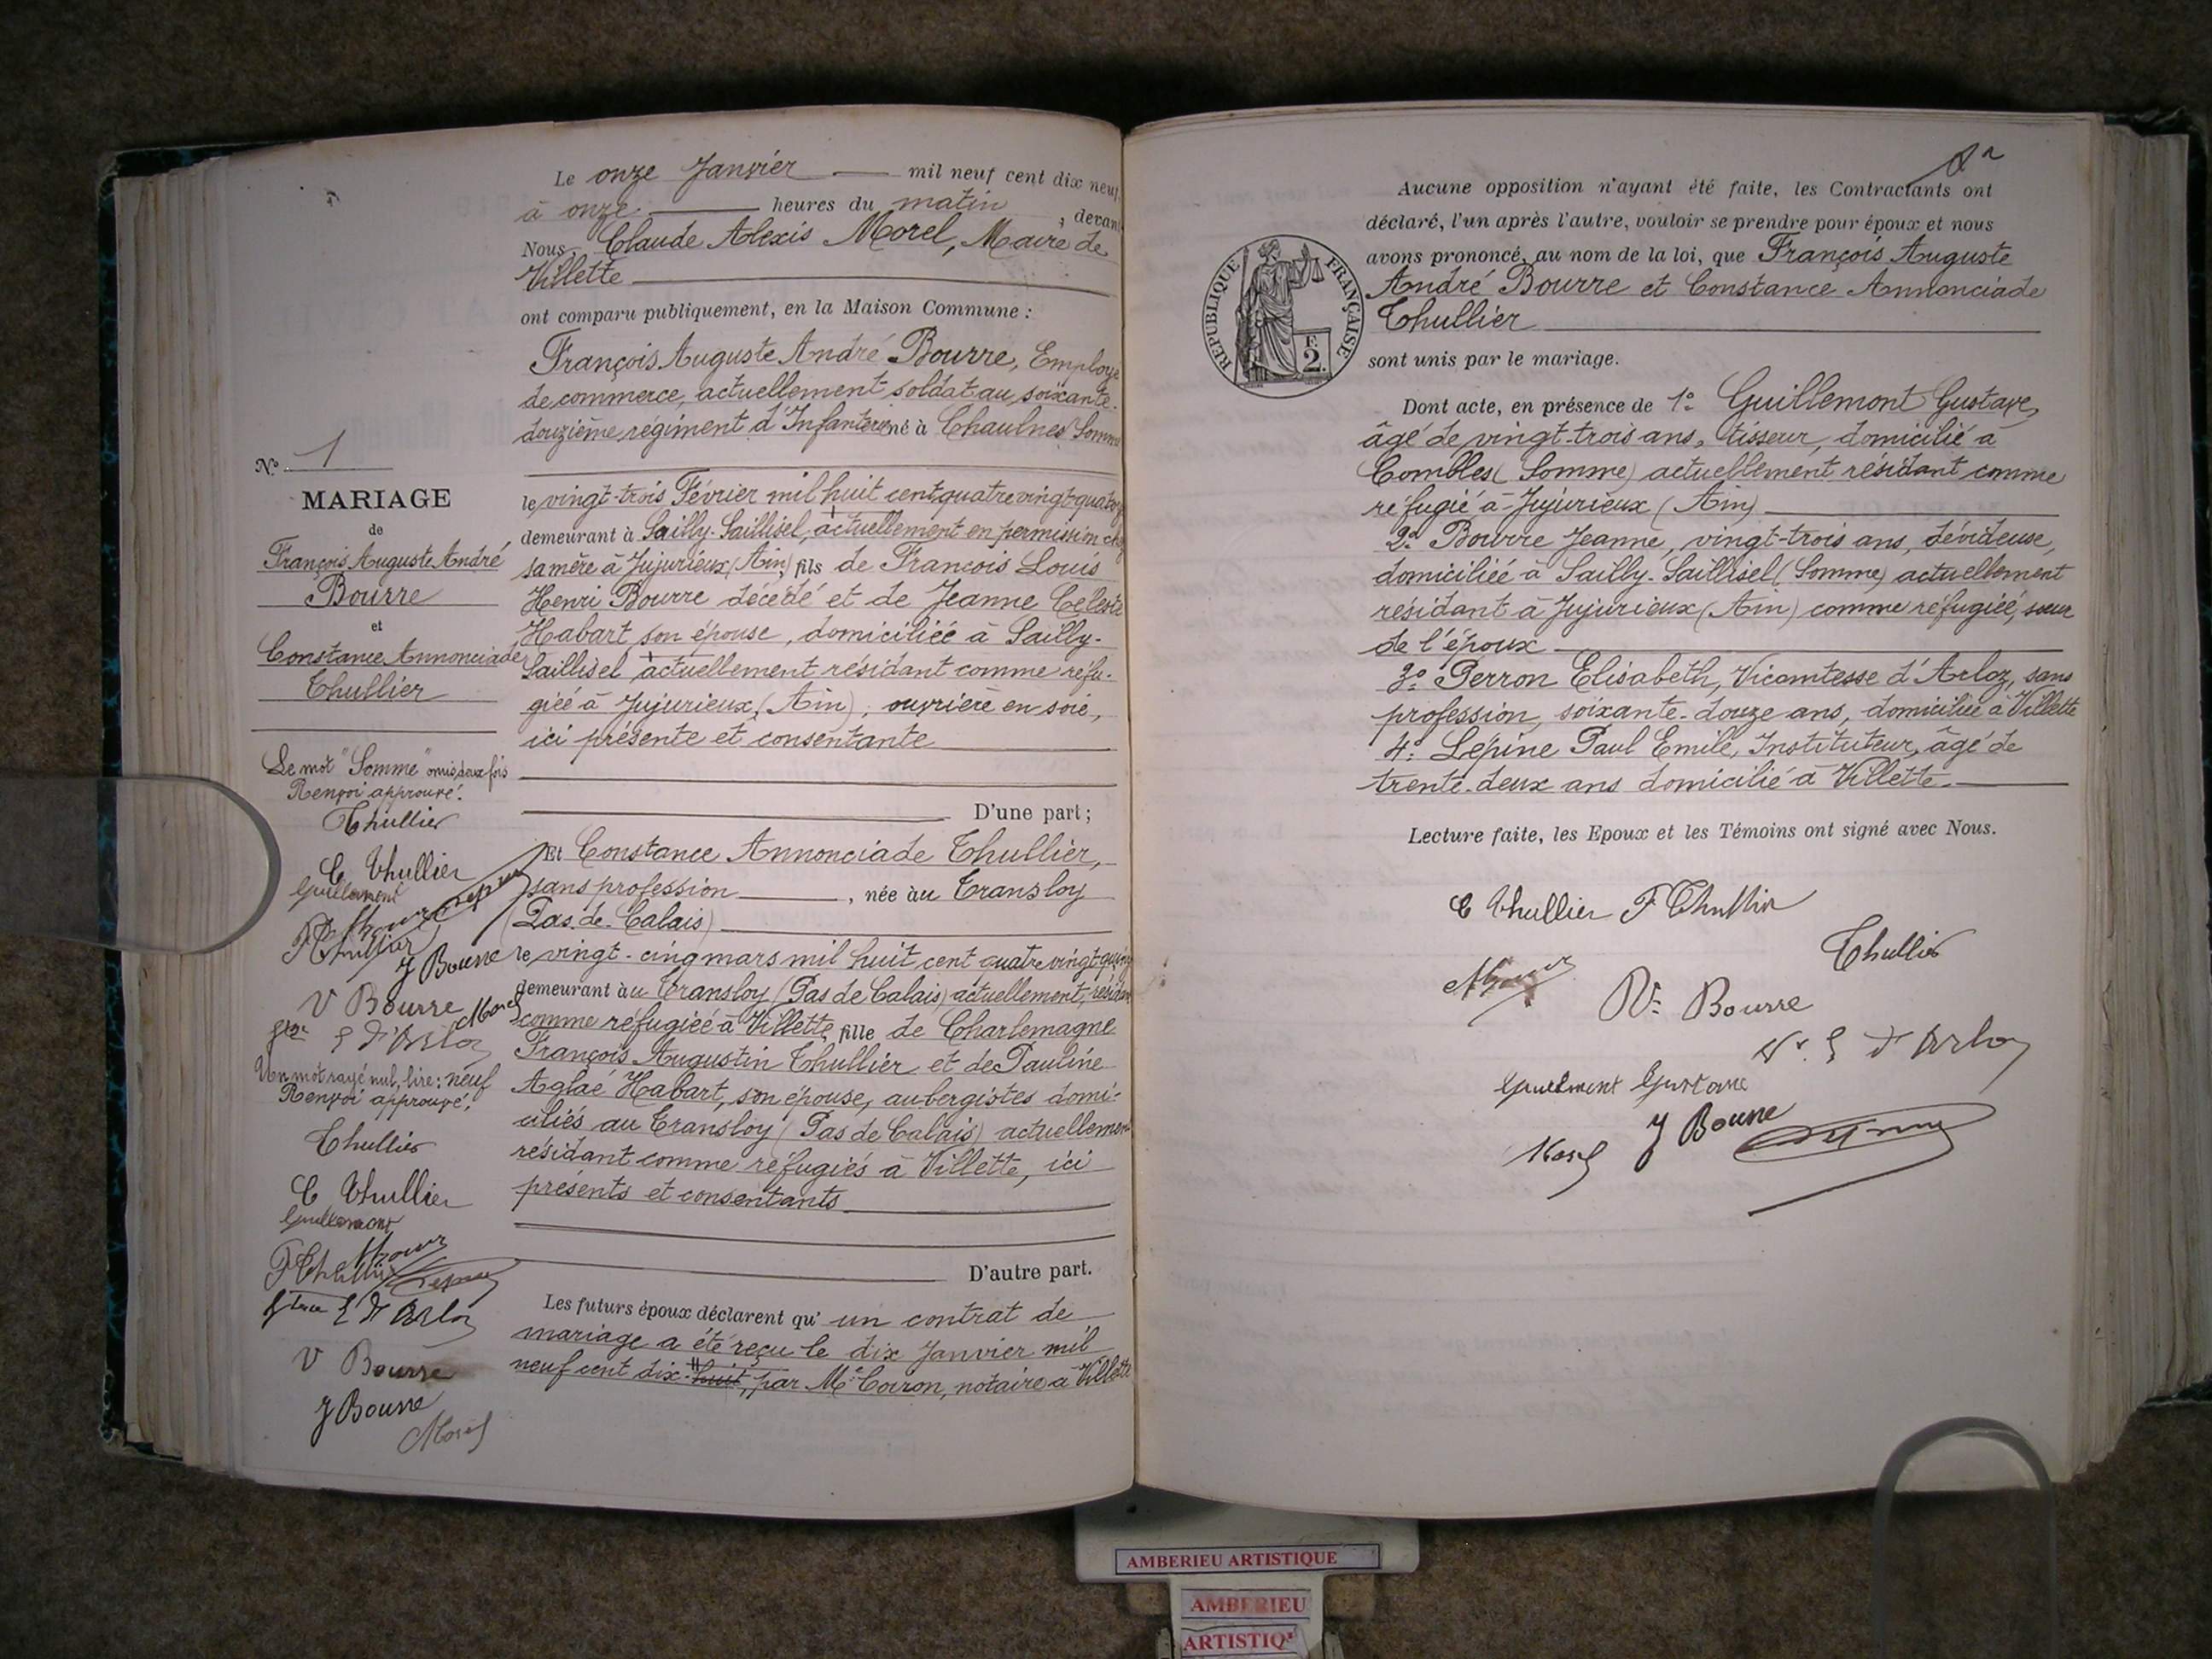 Le onze Janvier mil neuf cent dix neuf,
à onze heures du matin, devant
Nous Claude Alexis Morel, Maire de
Villette
ont comparu publiquement, en la Maison Commune :
François Auguste André Bourre, Employé
de commerce, actuellement soldat au soixante-
douzième régiment d'Infanterie né à Chaulnes (Somme
le vingt-trois Février mil huit cent quatre vingt quatorze
demeurant à Sailly-Saillisel, actuellement en permission chez
sa mère à Jujurieux (Ain) fils de François Louis
Henri Bourre décédé et de Jeanne Céleste
Habart son épouse, domiciliée à Sailly-
Saillisel actuellement résidant comme réfu-
giée à Jujurieux (Ain), ouvrière en soie,
ici présente et consentante
D'une part ;
Et Constance Annonciade Thullier,
sans profession, née au Transloy
(Pas-de-Calais)
le vingt-cinq mars mil huit cent quatre vingt quinze
demeurant au Transloy (Pas de Calais) actuellement résidant
comme réfugiée à Villette, fille de Charlemagne
François Augustin Thullier et de Pauline
Aglaé Habart, son épouse, aubergistes domi-
ciliés au Transloy (Pas de Calais) actuellement
résidant comme réfugiés à Villette, ici
présents et consentants
D'autre part.
Les futurs époux déclarent qu'un contrat de
mariage a été reçu le dix Janvier mil
neuf cent dix-huit, par Me Coiron, notaire à Villette
N° 1
MARIAGE
de
François Auguste André
Bourre
et
Constance Annonciade
Thullier
Le mot "Somme" omis deux fois
Renvoi approuvé.
Thullier
C Thullier
Guillemont
F Thullier
J Bourre
V Bourre
Morel
E d'Arloz
Un mot rayé nul, lire : neuf
Renvoi approuvé.
Thullier
C Thullier
Guillemont
F Thullier
E d'Arloz
V Bourre
J Bourre
Morel
Aucune opposition n'ayant été faite, les Contractants ont
déclaré, l'un après l'autre, vouloir se prendre pour époux et nous
avons prononcé, au nom de la loi, que François Auguste
André Bourre et Constance Annonciade
Thullier
sont unis par le mariage.
REPUBLIQUE FRANÇAISE
F.
2.
Dont acte, en présence de 1° Guillemont Gustave,
âgé de vingt-trois ans, tisseur, domicilié à
Combles (Somme) actuellement résidant comme
réfugié à Jujurieux (Ain)
2° Bourre Jeanne, vingt-trois ans, dévideuse,
domiciliée à Sailly-Saillisel (Somme) actuellement
résidant à Jujurieux (Ain) comme réfugiée, sœur
de l'époux
3° Perron Elisabeth, Vicomtesse d'Arloz, sans
profession, soixante-douze ans, domiciliée à Villette
4° Lépine Paul Emile, Instituteur, âgé de
trente-deux ans domicilié à Villette.
Lecture faite, les Epoux et les Témoins ont signé avec Nous.
C Thullier F Thullier
Thullier
Ve Bourre
E d'Arloz
Guillemont Gustave
J Bourre
Morel
AMBERIEU ARTISTIQUE
AMBERIEU
ARTISTIQ